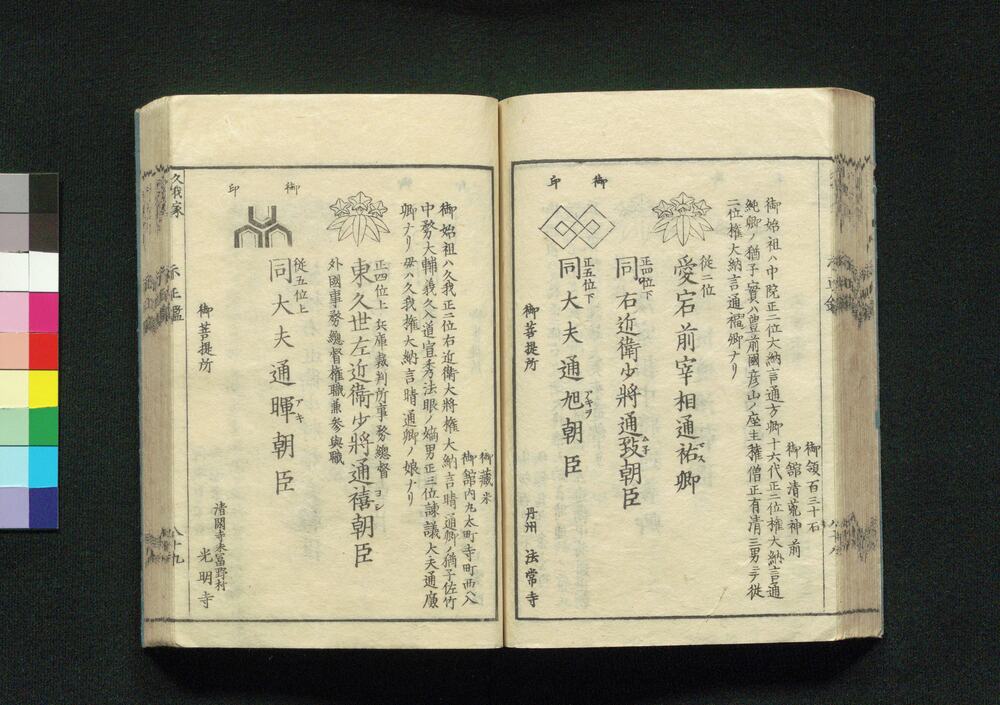 御領百三十石
御館清荒神前
御始祖ハ中院正二位大納言通方卿十六代正二位権大納言通
純卿ノ猶子實ハ豊前國彦山ノ座主権僧正有清三男ニテ従
二位権大納言通福卿ナリ
従二位
愛宕前宰相通祐卿
正四位下
同右近衛少將通致朝臣
正五位下
同大夫通旭朝臣
アキヲ
御印
御菩提所
丹州 法常寺
御蔵米
御館内丸太町寺町西ヘ入
御始祖ハ久我正二位右近衛大將権大納言晴通卿ノ猶子佐竹
中務大輔義久入道宣秀法眼ノ嫡男正三位諫議大夫通廉
卿ナリ母ハ久我権大納言晴通卿ノ娘ナリ
正四位上 兵庫裁判所事務總督
東久世左近衛少將通禧朝臣
外國事務總督権職兼参與職
従五位上
同大夫通暉朝臣
アキ
御印
御菩提所
光明寺
久我家
八十九